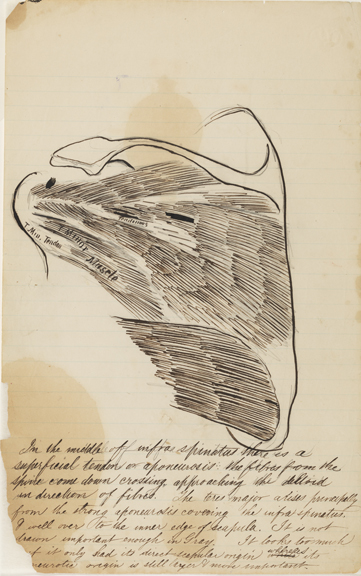 T. Min. Tendon
T. Minor
Muscle
In the middle off infra spinatus there is a
superficial tendon or aponeurosis: the fibres from the
spine come down crossing approaching the deltoid
in direction of fibres. The teres major arises principally
from the strong aponeurosis covering the infra spinatus.
& well over to the inner edge of scapula. It is not
drawn important enough in Gray. It looks too much
if it only had its direct scapular origin whereas its
neurotic origin is still larger & more important.